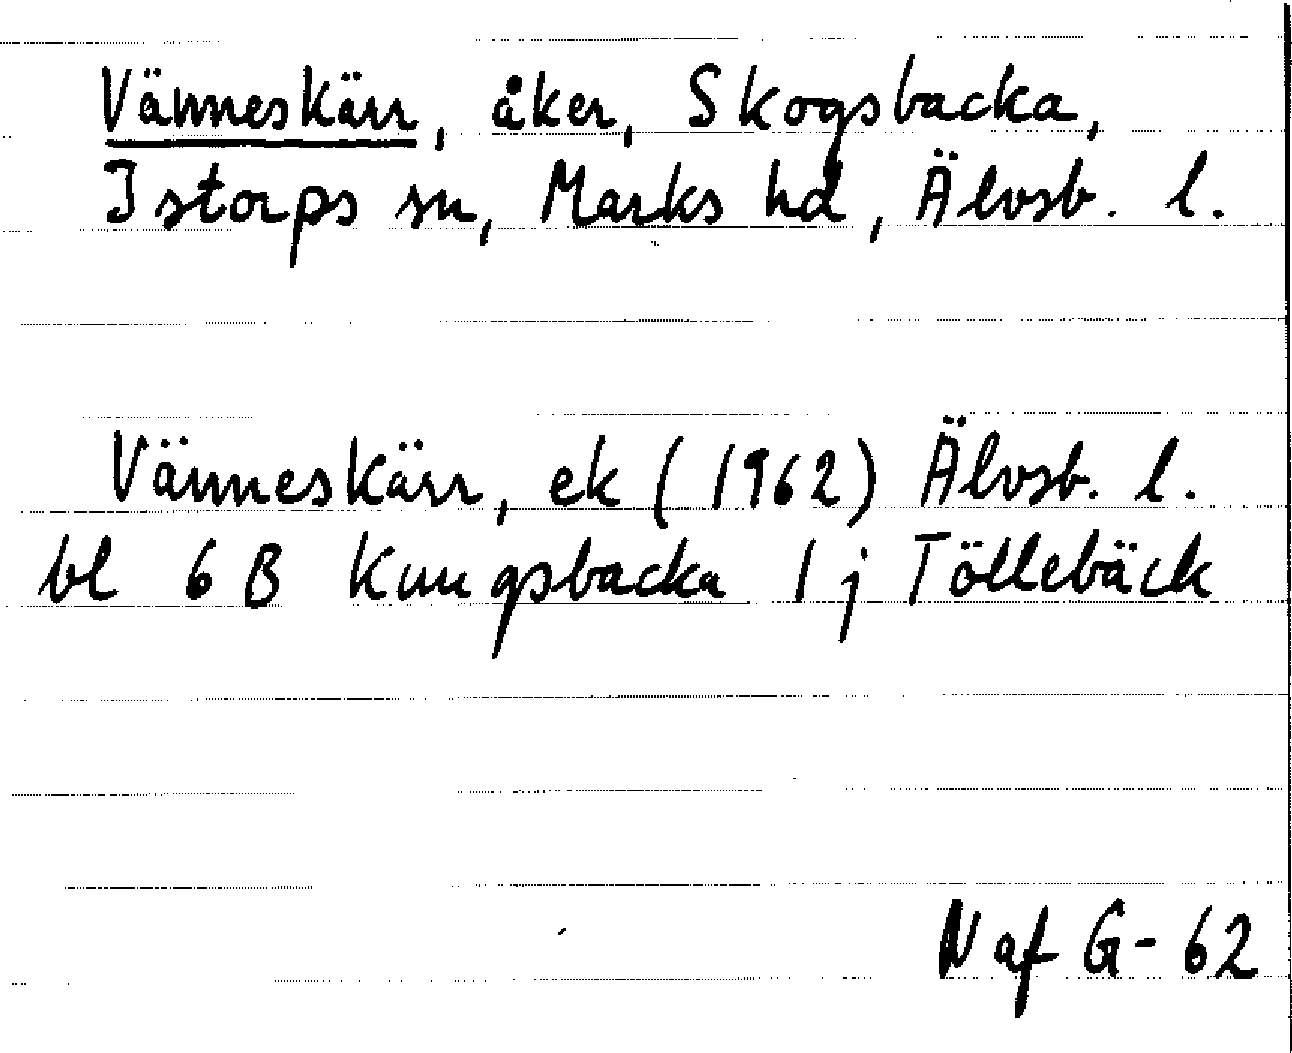 Vänneskärr, åker, Skogsbacka,
Istorps sn, Marks hd, Älvsb. l.
Vänneskärr, ek (1962) Älvsb. l.
bl 6 B Kungsbacka 1 j Töllebäck
N af G-62